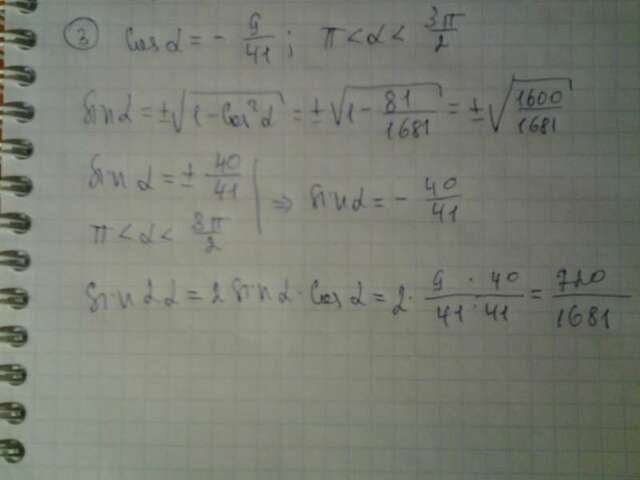 ③ Cos α = - 9/41 ; π < α < 3π/2
Sin α = ±√(1 - Cos²α) = ±√(1 - 81/1681) = ±√(1600/1681)
Sin α = ± 40/41 | ⇒ Sin α = - 40/41
π < α < 3π/2
Sin 2α = 2 Sin α · Cos α = 2 · (9 · 40)/(41 · 41) = 720/1681